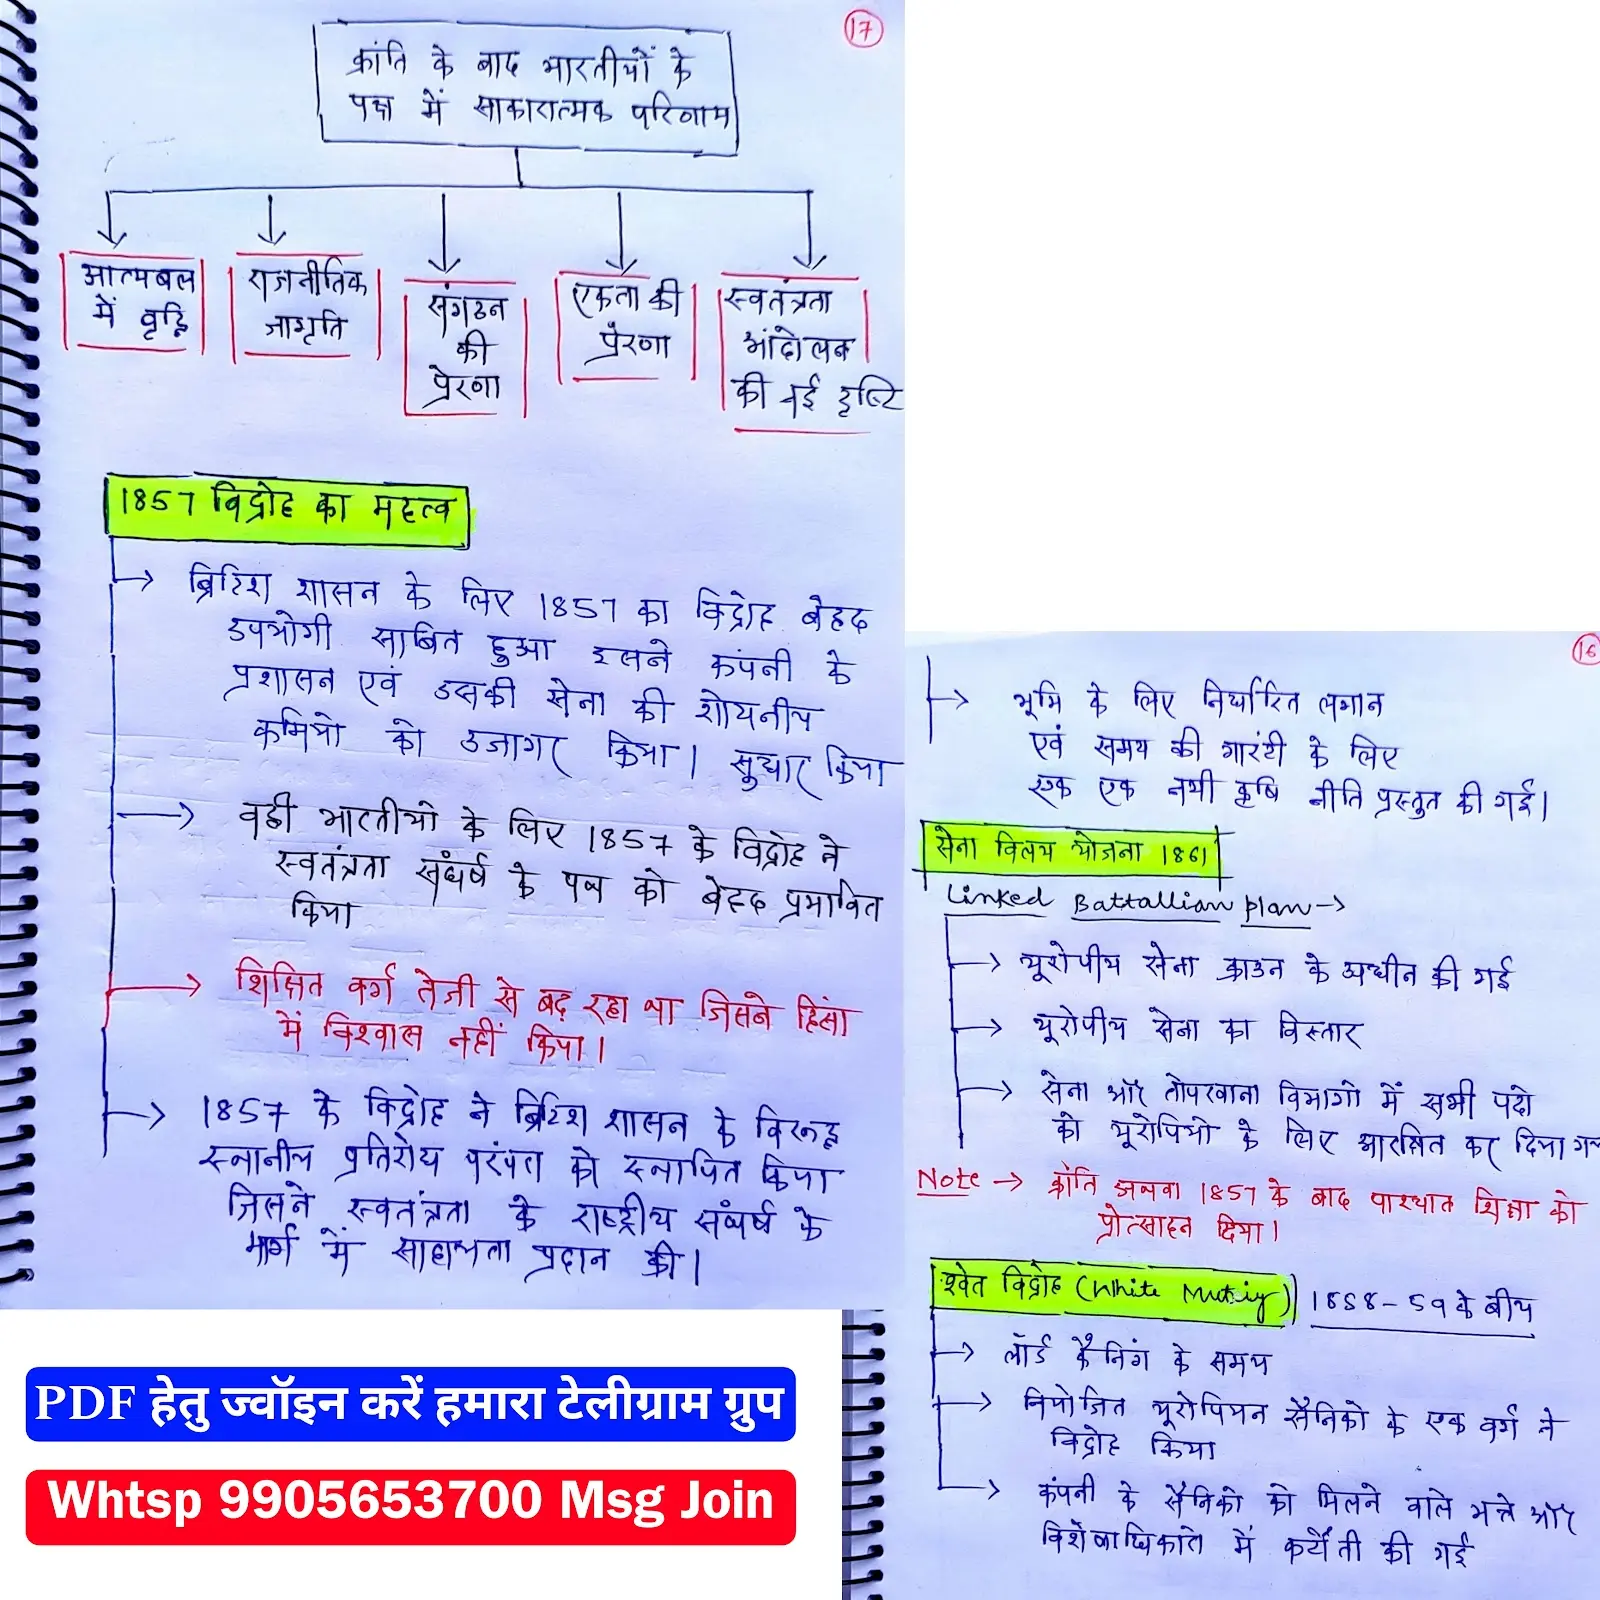 17
क्रांति के बाद भारतीयों के
पक्ष में साकारात्मक परिणाम
आत्मबल
में वृद्धि
राजनीतिक
जागृति
संगठन
की
प्रेरणा
एकता की
प्रेरणा
स्वतंत्रता
आंदोलन
की नई दृष्टि
1857 विद्रोह का महत्व
ब्रिटिश शासन के लिए 1857 का विद्रोह बेहद
उपयोगी साबित हुआ इसने कंपनी के
प्रशासन एवं उसकी सेना की शोचनीय
कमियो को उजागर किया। सुधार किया
वही भारतीयो के लिए 1857 के विद्रोह ने
स्वतंत्रता संघर्ष के पथ को बेहद प्रभावित
किया
शिक्षित वर्ग तेजी से बढ़ रहा था जिसने हिंसा
में विश्वास नहीं किया।
1857 के विद्रोह ने ब्रिटिश शासन के विरूद्ध
स्थानीय प्रतिरोध परंपरा को स्थापित किया
जिसने स्वतंत्रता के राष्ट्रीय संघर्ष के
मार्ग में साहायता प्रदान की।
16
भूमि के लिए निर्धारित लगान
एवं समय की गारंटी के लिए
एक एक नयी कृषि नीति प्रस्तुत की गई।
सेना विलय योजना 1861
Linked Battallian plan→
यूरोपीय सेना क्राउन के अधीन की गई
यूरोपीय सेना का विस्तार
सेना और तोपखाना विभागो में सभी पदो
को यूरोपियो के लिए आरक्षित कर दिया
Note → क्रांति अथवा 1857 के बाद पाश्चात शिक्षा को
प्रोत्साहन दिया।
श्वेत विद्रोह (White Mutiny) 1858-59 के बीच
लॉर्ड कैनिंग के समय
नियोजित यूरोपियन सैनिको के एक वर्ग ने
विद्रोह किया
कंपनी के सैनिको को मिलने वाले भत्ते और
विशेषाधिकारो में कटौती की गई
PDF हेतु ज्वॉइन करें हमारा टेलीग्राम ग्रुप
Whtsp 9905653700 Msg Join